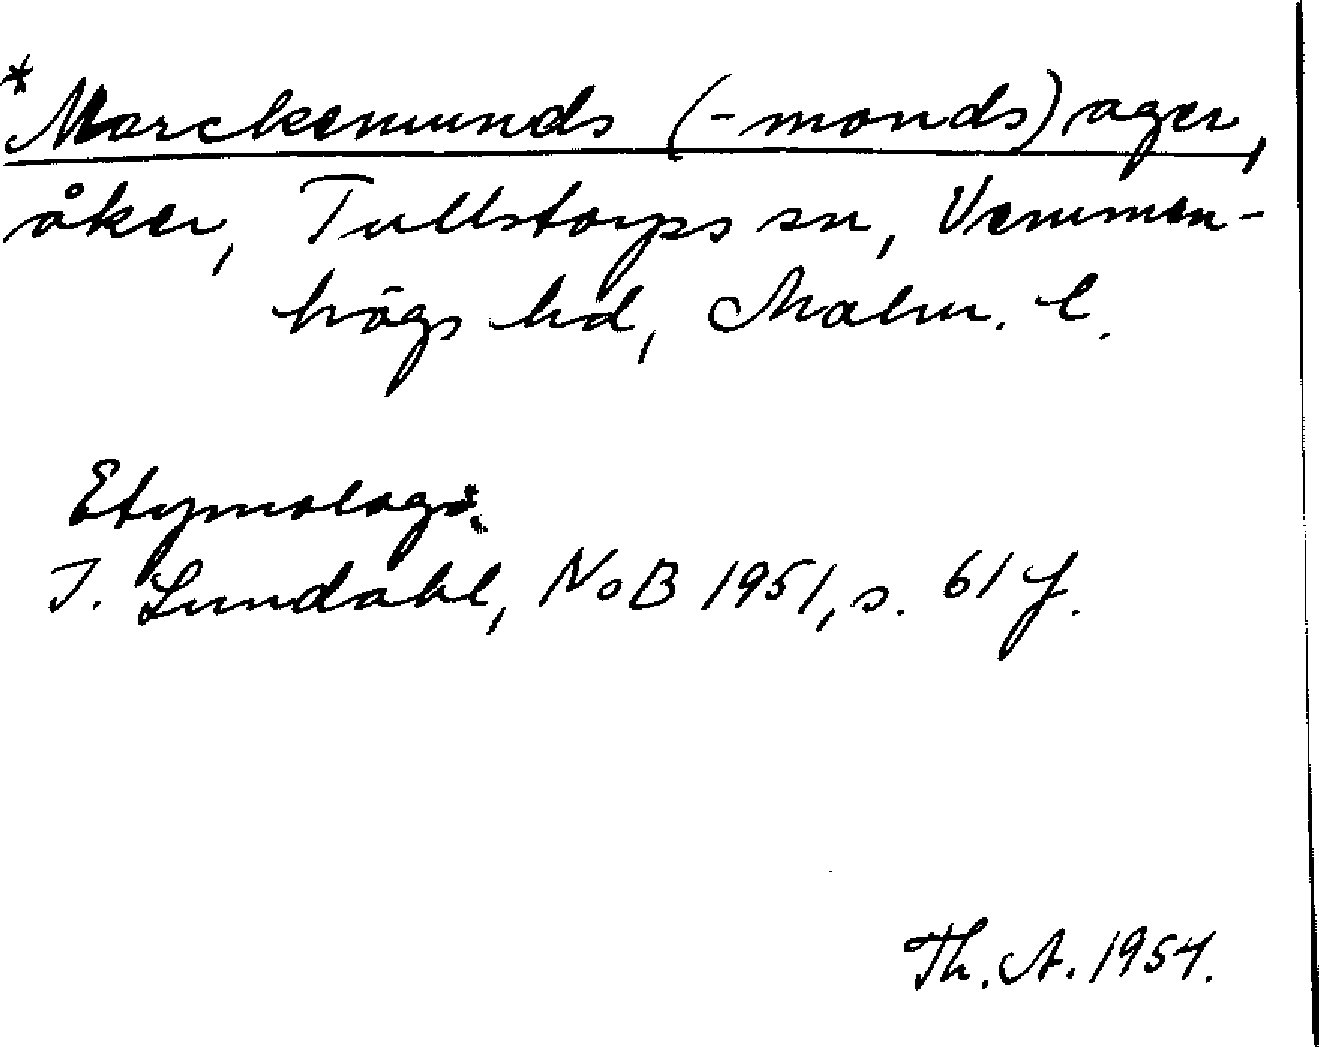 *Marckemunds (-monds) ager,
åker, Tullstorps sn, Vemmen-
högs hd, Malm. l.
Etymologi.
I. Lundahl, NoB 1951, s. 61 f.
Th. A. 1954.